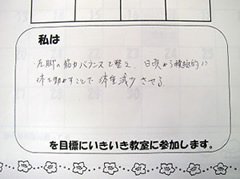 私は
左脚の筋力バランスを整え 日頃から積極的に
体を動かすことで 体重減少させる
を目標にいきいき教室に参加します。